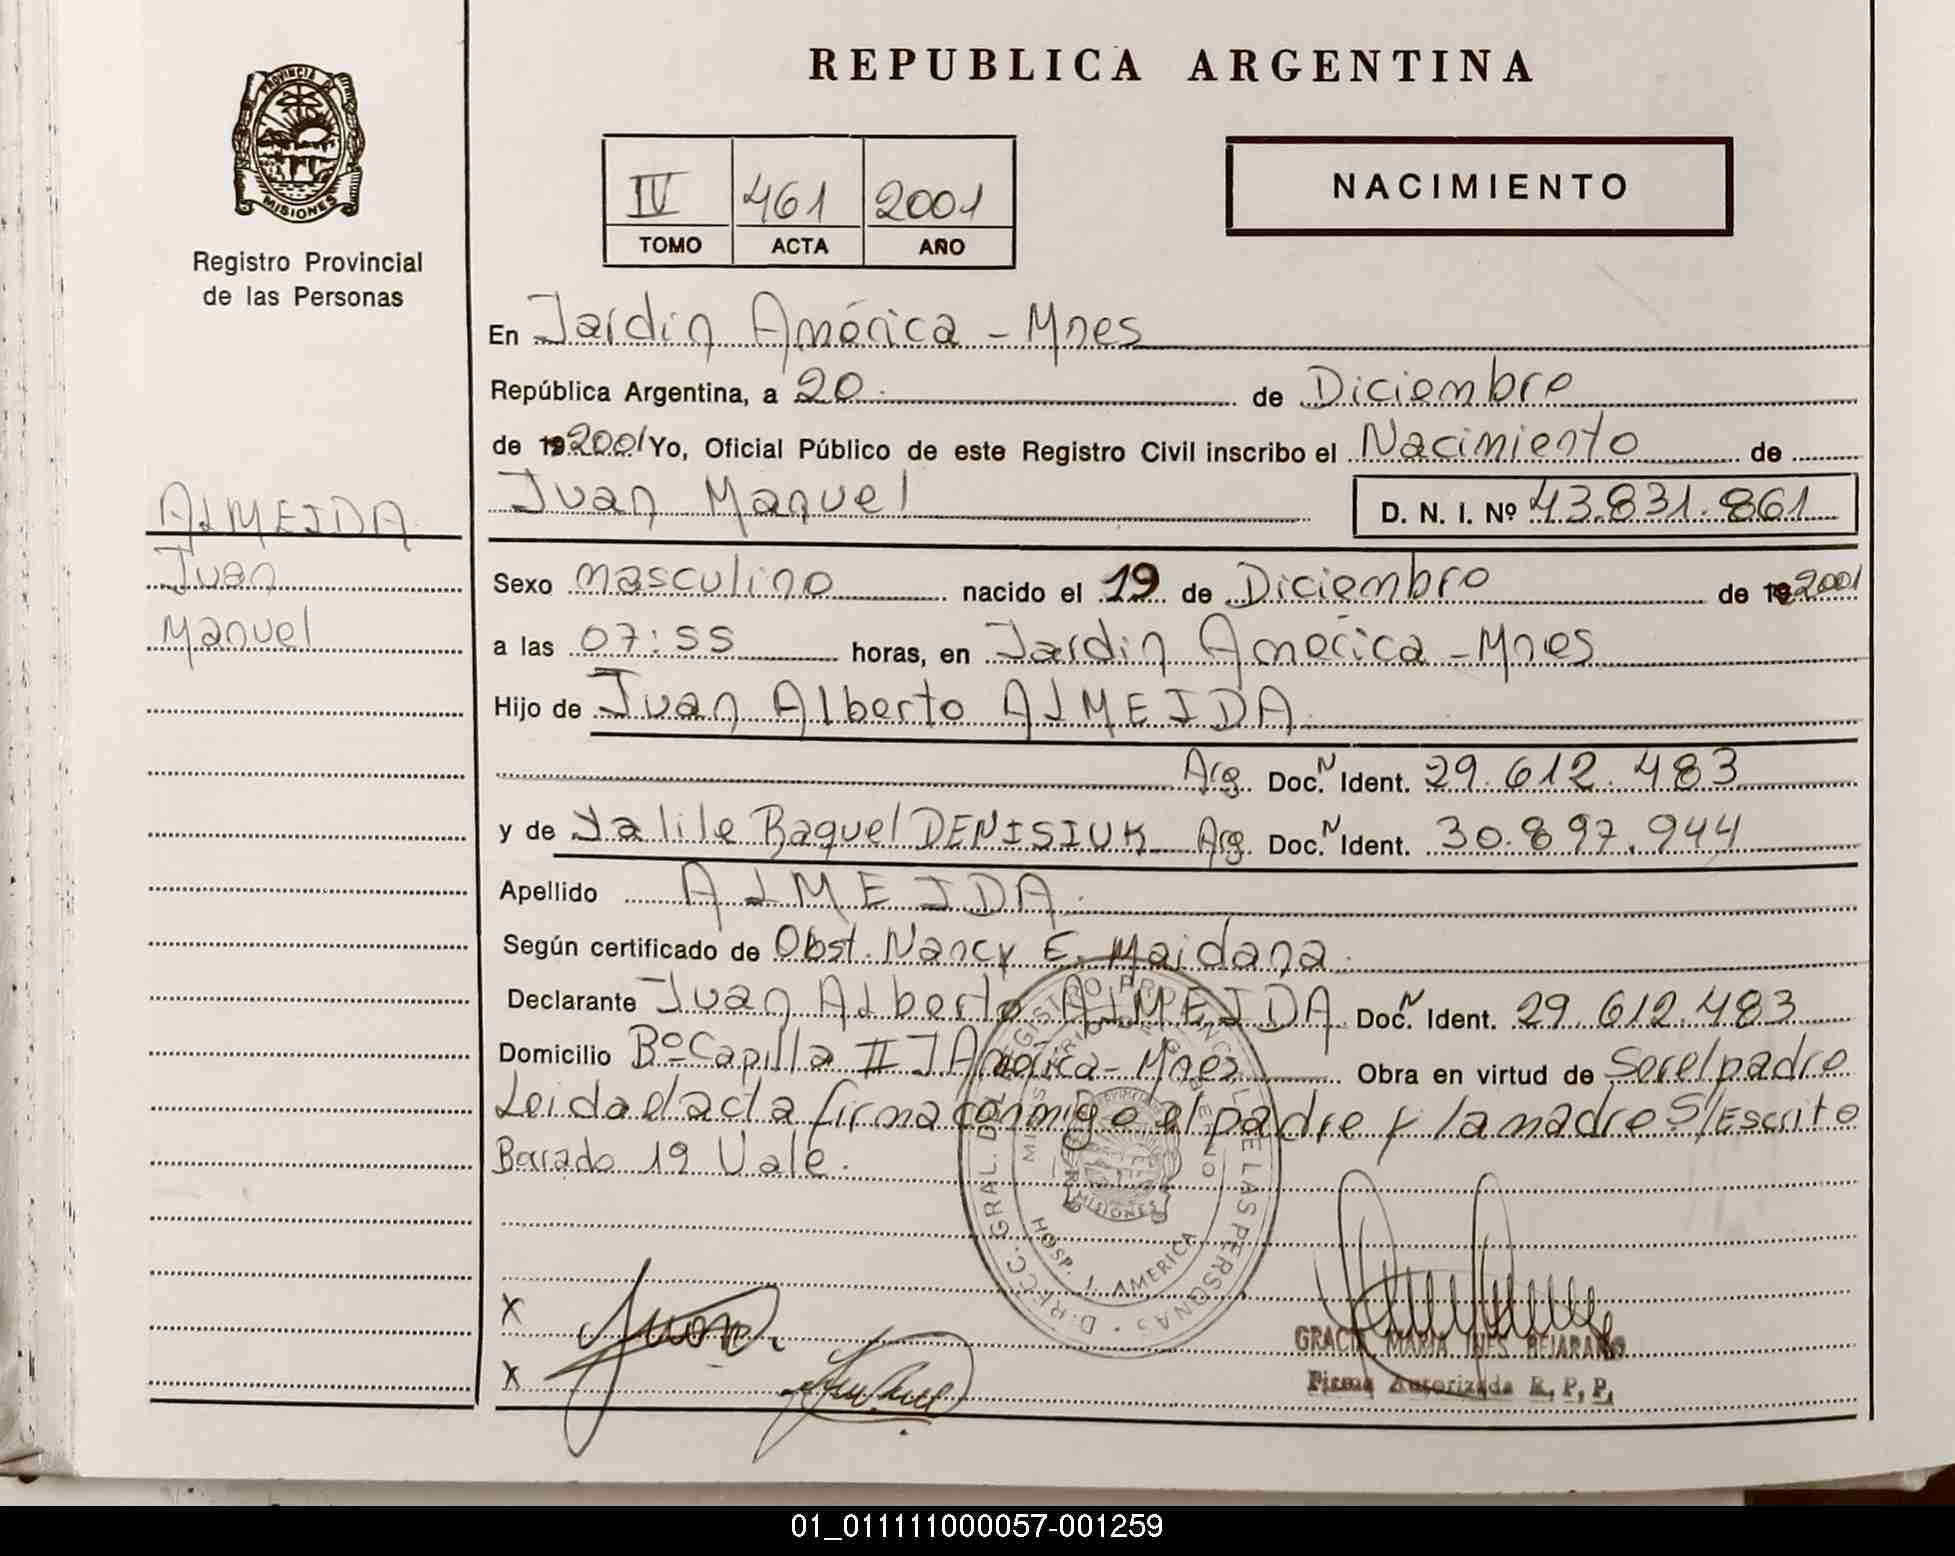 REPUBLICA ARGENTINA
PROVINCIA DE
MISIONES
Registro Provincial
de las Personas
IV 461 2001
TOMO ACTA AÑO
NACIMIENTO
En Jardín América - Mnes
República Argentina, a 20 de Diciembre
de 192001 Yo, Oficial Público de este Registro Civil inscribo el Nacimiento de
Juan Manuel D. N. I. Nº 43.831.861
ALMEIDA
Juan
Manuel
Sexo masculino nacido el 19 de Diciembre de 192001
a las 07:55 horas, en Jardín América - Mnes
Hijo de Juan Alberto ALMEIDA
Arg. Doc. N Ident. 29.612.483
y de Yalile Raquel DENISIUK Arg. Doc. N Ident. 30.897.944
Apellido ALMEIDA
Según certificado de Obst. Nancy E. Maidana
Declarante Juan Alberto ALMEIDA Doc. N Ident. 29.612.483
Domicilio Bº Capilla II J América - Mnes Obra en virtud de Ser el padre
Leida el acta firma conmigo el padre y la madre S/Escrito
Borrado 19 Vale.
D.RECC. GRAL. DEL REGISTRO PROVINCIAL DE LAS PERSONAS
MINISTERIO DE GOBIERNO
MISIONES
HOSP. J. AMERICA
X
X
GRACIA MARIA INES BEJARANO
Firma Autorizada R. P. P.
01_011111000057-001259